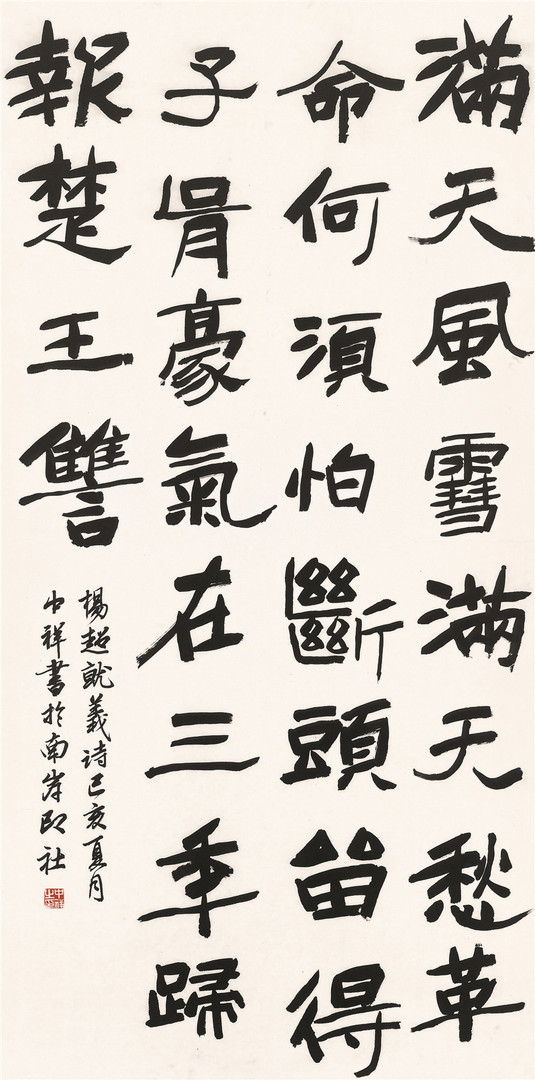 滿天風雪滿天愁革
命何須怕斷頭留得
子胥豪氣在三年歸
報楚王讐
楊超就義诗己亥夏月
中祥書於南岸印社